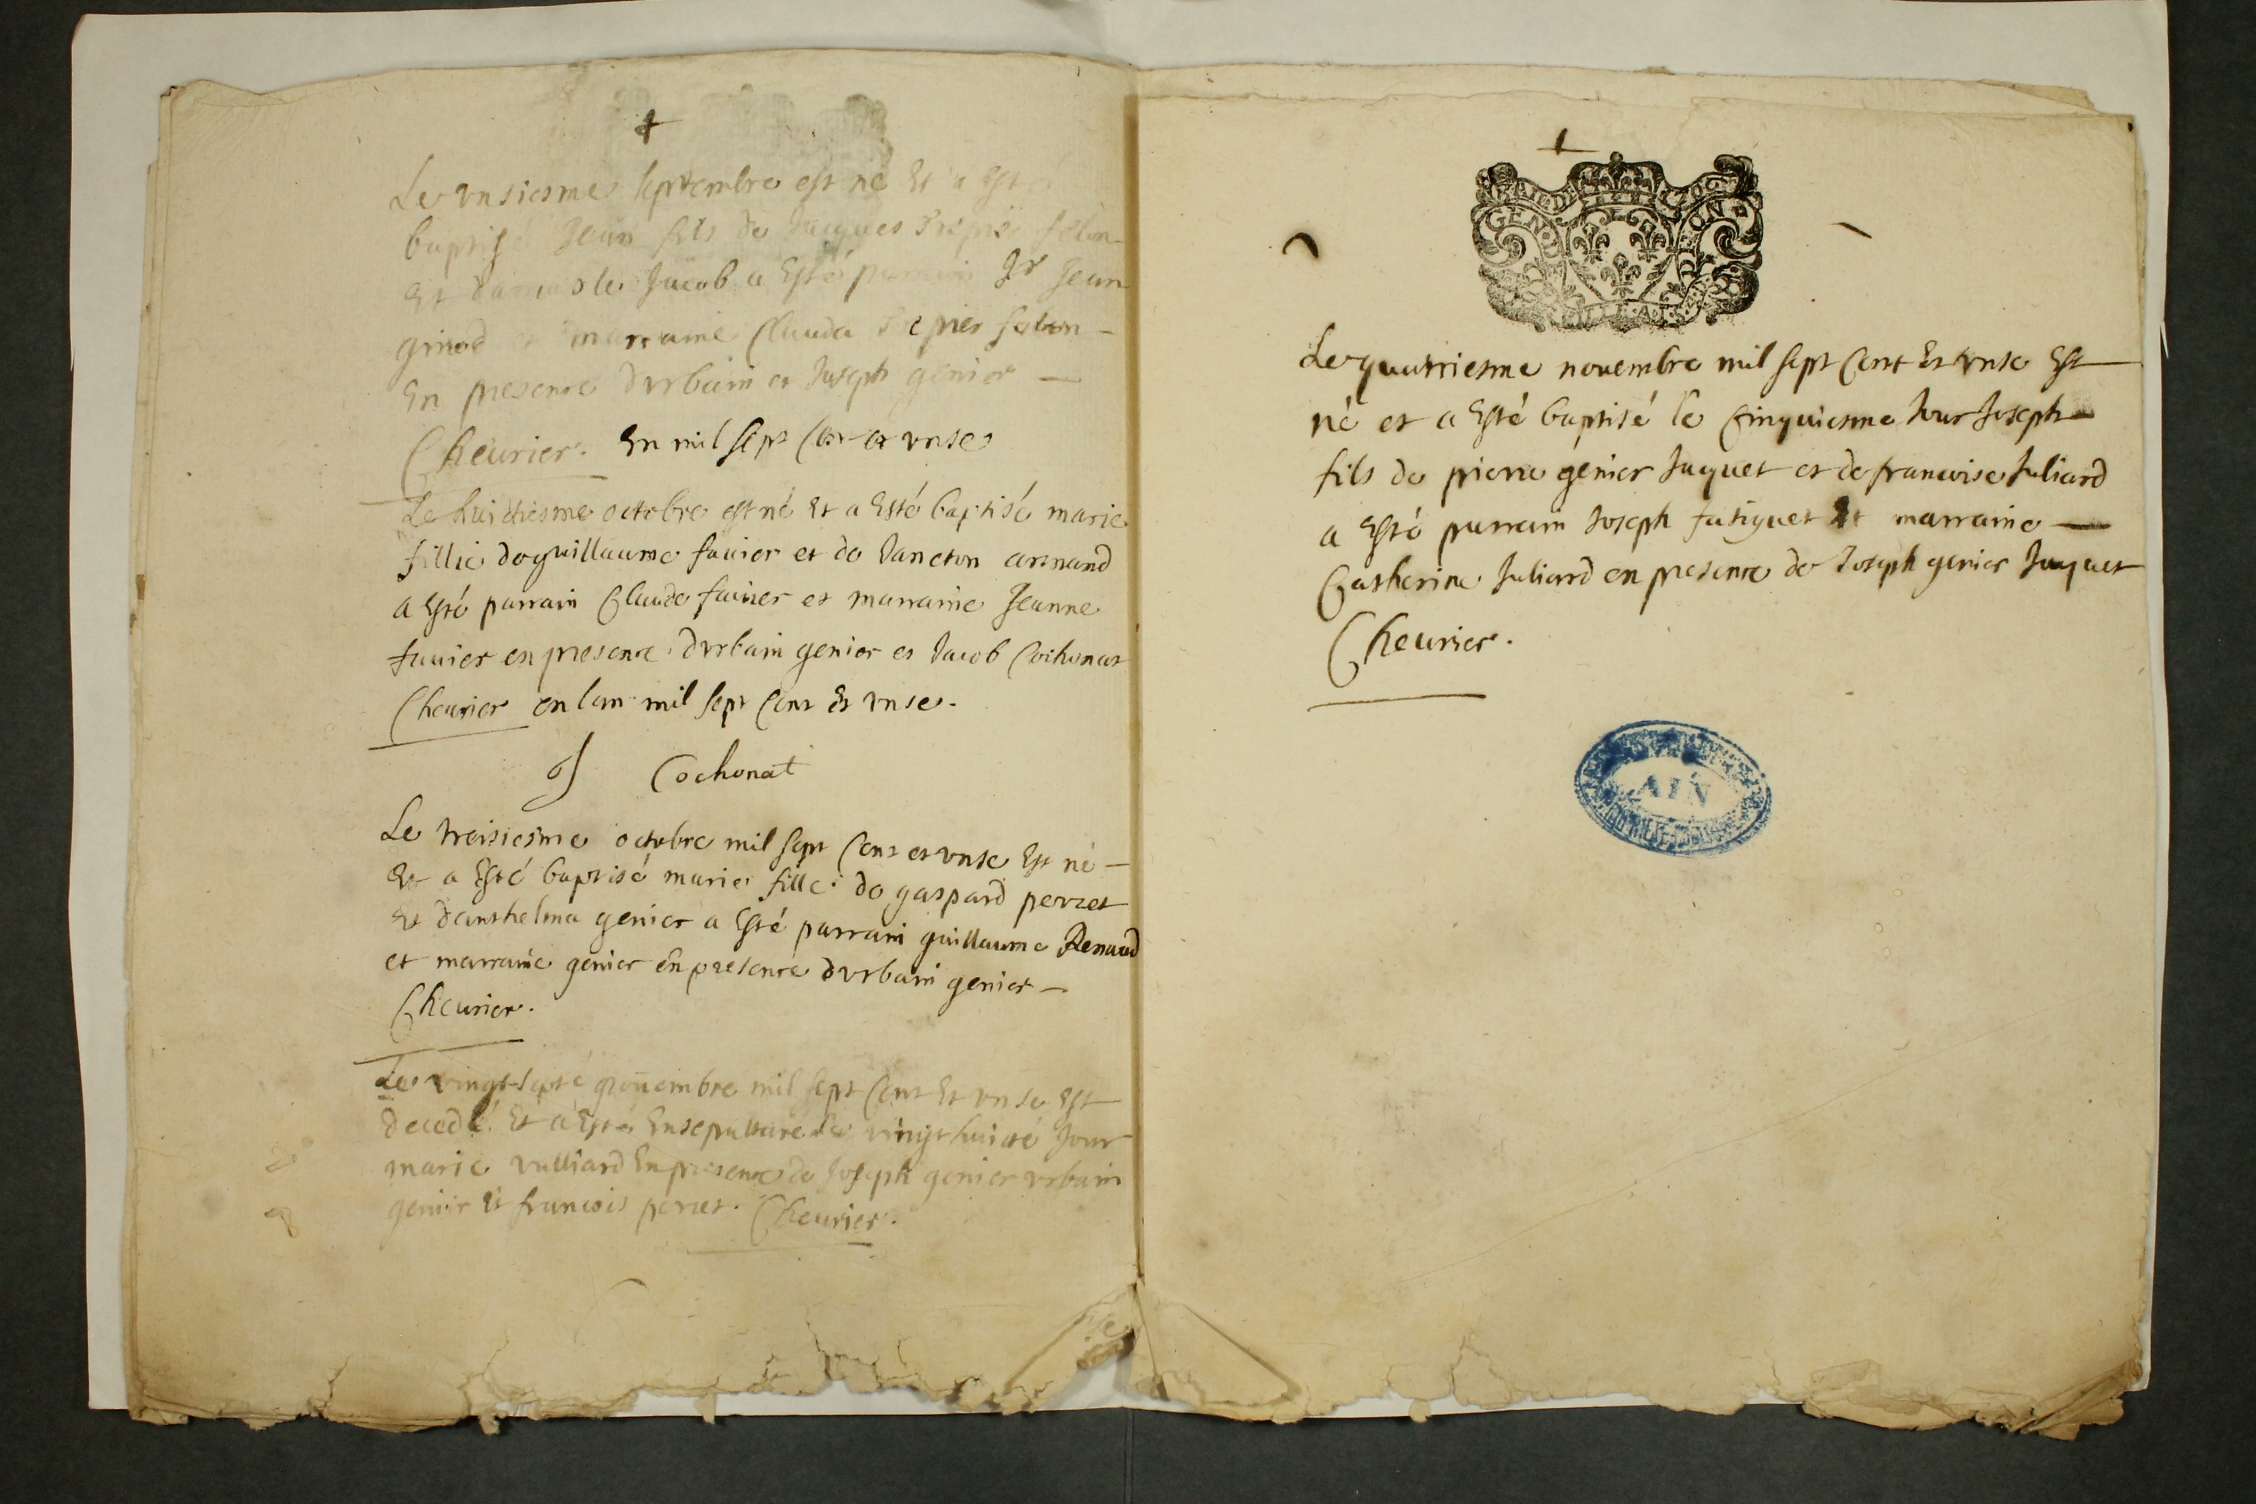 Le vnsiesme septembre est né Et a Esté
baptisé Jean fils de Jacques
Et Jacob a Esté parrain Jean
ginod et marraine Clauda
En presence d vrbain et Joseph genier
Cheurier. En mil sept Cent et vnse
Le huictiesme octobre est né Et a Esté baptisé marie
fillie de guillaume fauier et de Jancton armand
a Esté parrain Claude fauier et marraine Jeanne
fauier en presence d vrbain genier et Jacob Cochonat
Cheurier en lan mil sept Cent Et vnse.
Cochonat
Le treisiesme octobre mil sept Cent et vnse Est né
Et a Esté baptisé marie fille de gaspard perret
Et d'anthelma genier a Esté parrain guillaume Renaud
et marraine genier en presence d vrbain genier
Cheurier.
Le vingt septe nouembre mil sept Cent Et vnse Est
decedé Et a Esté Ensepulturé le vingt huicté Jour
marie vulliard En presence de Joseph genier vrbain
genier Et francois perret. Cheurier.
GEN ON
Le quatriesme nouembre mil sept Cent Et vnse Est
né et a Esté baptisé le Cinquiesme Jour Joseph
fils de pierre genier Juquet et de francoise Juliard
a Esté parrain Joseph fatiguet Et marraine
Catherine Juliard en presence de Joseph genier Juquet
Cheurier.
AIN